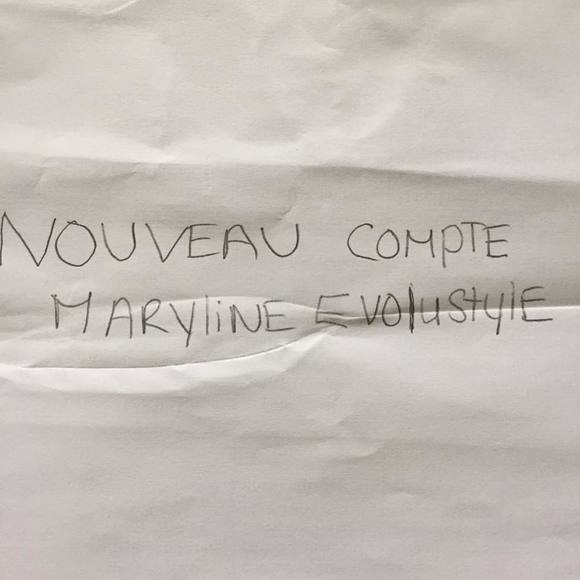 NOUVEAU COMPTE
MARYliNE EVOluStylE